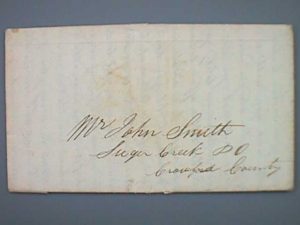 Mr John Smith
Suger Creek P O
Crawford County